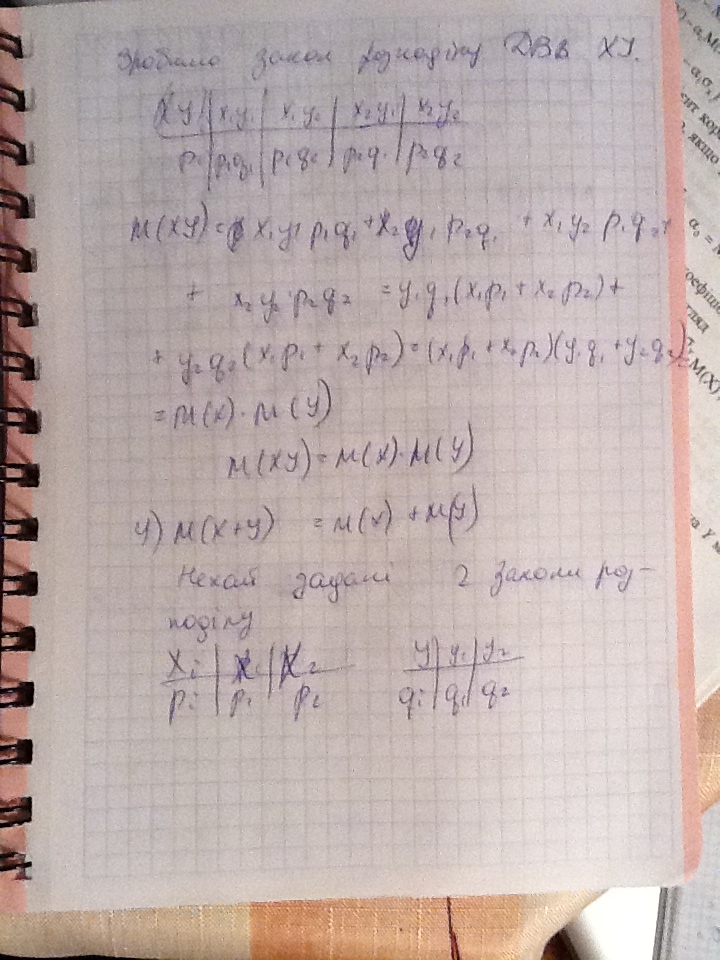 Зробимо закон розподілу ДВВ XY.
XY | x₁y₁ | x₁y₂ | x₂y₁ | x₂y₂
pᵢ | p₁q₁ | p₁q₂ | p₂q₁ | p₂q₂
M(XY) = x₁y₁p₁q₁ + x₂y₁p₂q₁ + x₁y₂p₁q₂+
+ x₂y₂p₂q₂ = y₁q₁(x₁p₁ + x₂p₂) +
+ y₂q₂(x₁p₁ + x₂p₂) = (x₁p₁ + x₂p₂)(y₁q₁ + y₂q₂)
= M(X) · M(Y)
M(XY) = M(X)·M(Y)
4) M(X+Y) = M(X) + M(Y)
Нехай задані 2 закони роз-
поділу
Xᵢ | X₁ | X₂ Y | y₁ | y₂
pᵢ | p₁ | p₂ qᵢ | q₁ | q₂